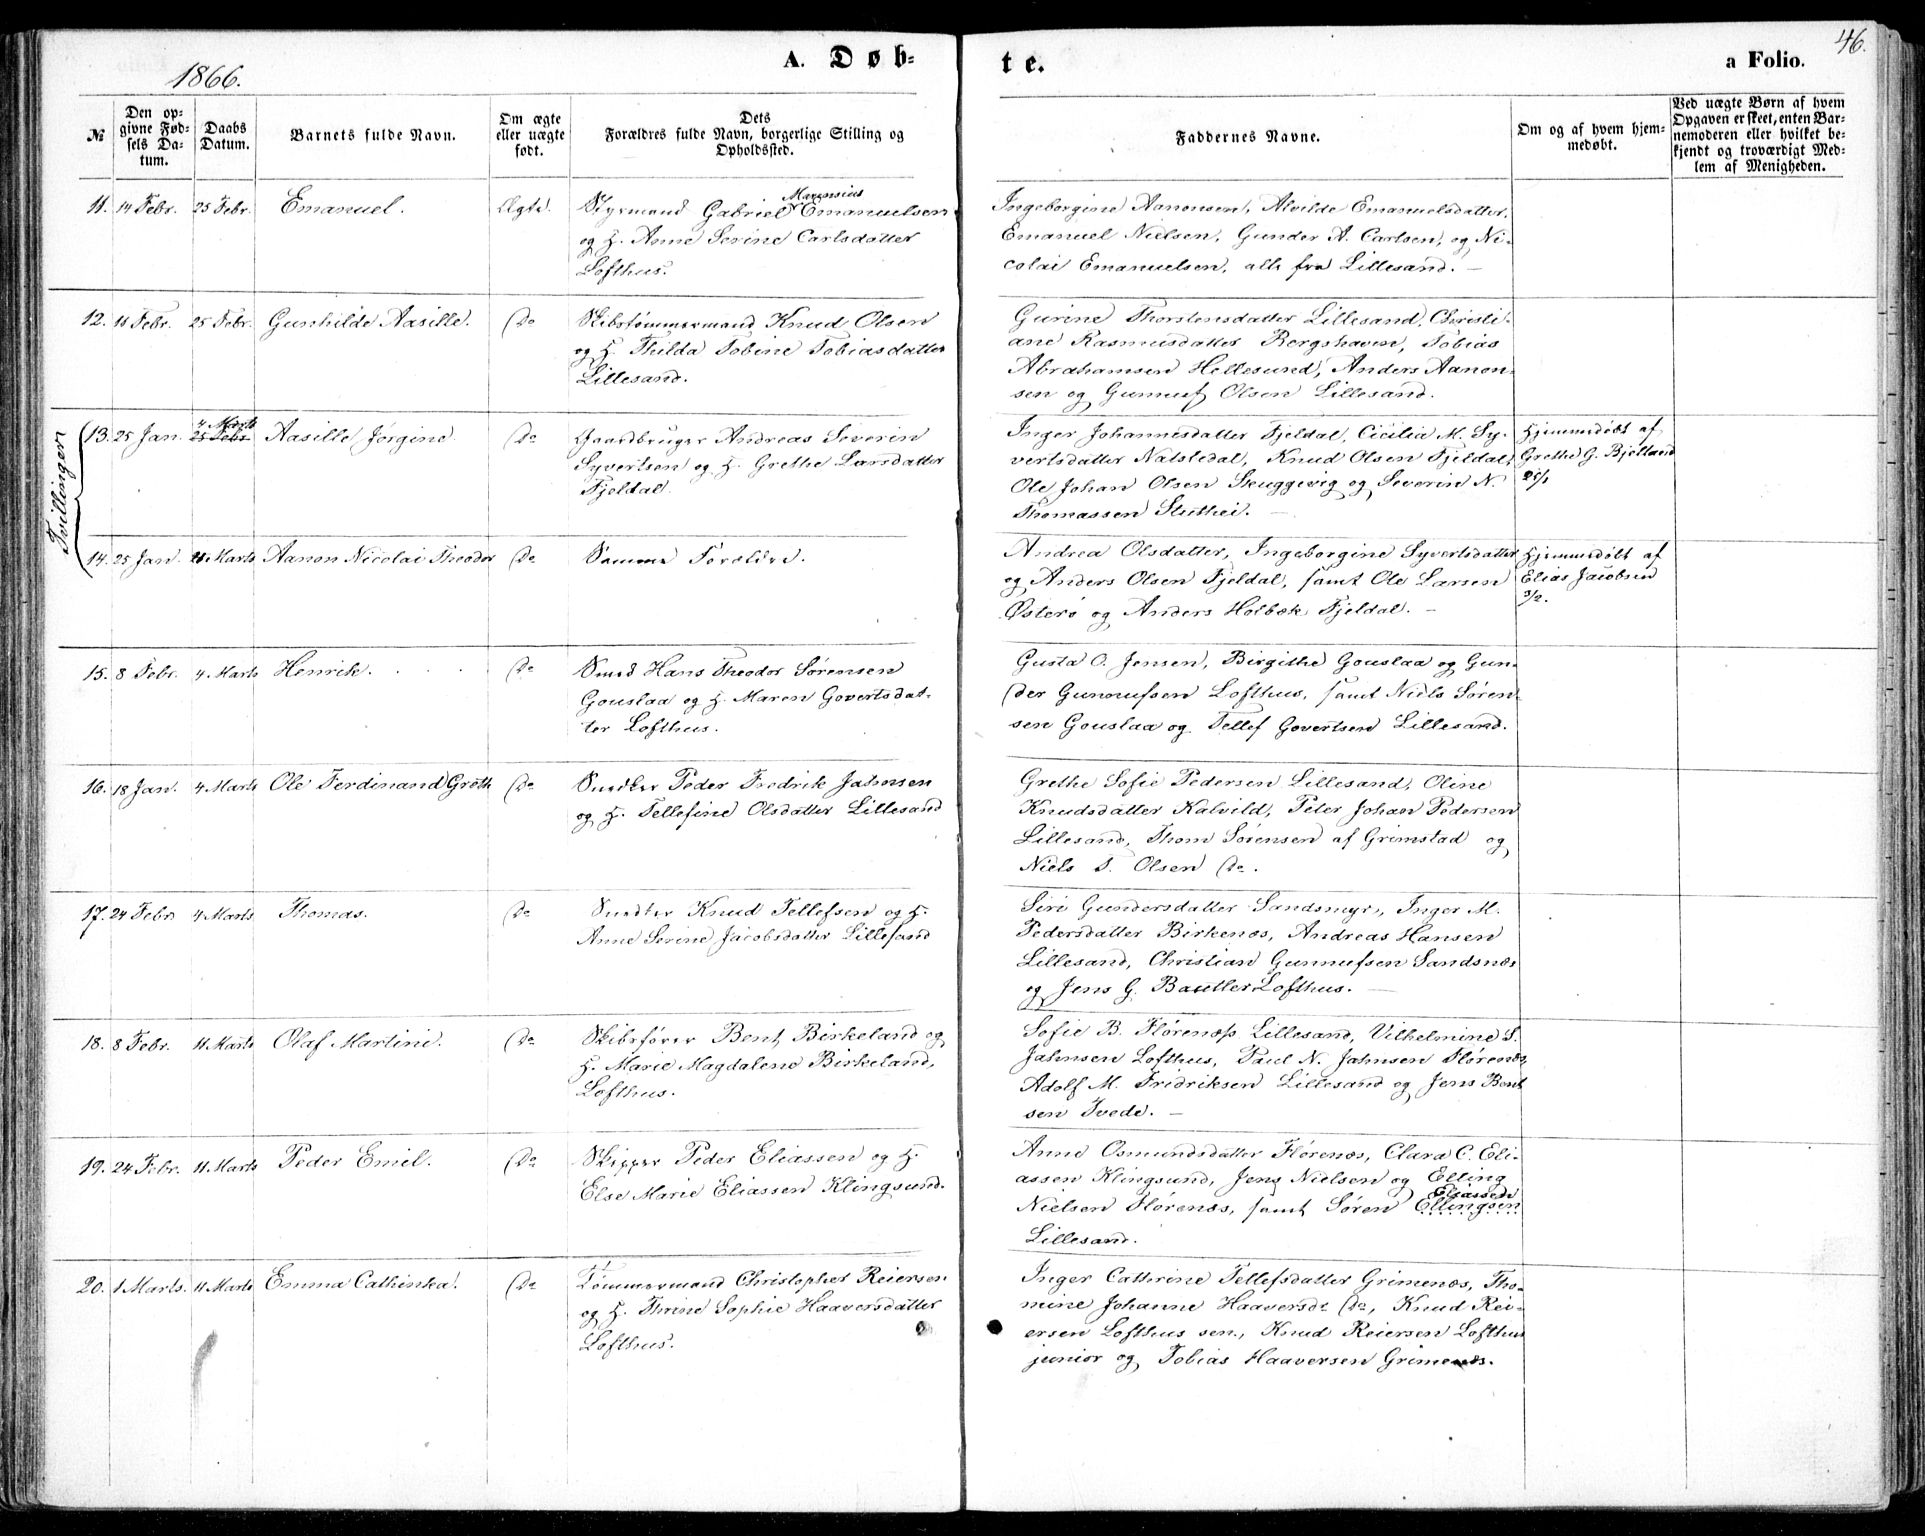 46.
1866.
A. Døb-
te.
a Folio.
№
Den op-
givne Fød-
sels Da-
tum.
Daabs
Datum.
Barnets fulde Navn.
Om ægte
eller uægte
født.
Dets
Forældres fulde Navn, borgerlige Stilling og
Opholdssted.
Faddernes Navne.
Om og af hvem hjem-
medøbt.
Ved uægte Børn af hvem
Opgaven er skeet, enten Bar-
nemoderen eller hvilket be-
kjendt og troværdigt Med-
lem af Menigheden.
11. 14 Febr. 25 Febr. Emanuel. Ægte.
Marensius
Styrmand Gabriel Emanuelsen
og H. Anne Serine Carlsdatter
Lofthus.
Ingeborgine Aanonsen, Alvilde Emanuelsdatter,
Emanuel Nielsen, Gunder A. Carlsen, og Ni-
colai Emanuelsen, alle fra Lillesand. —
12. 11 Febr. 25 Febr. Gunhilde Aasille. Do
Skibstømmermand Knud Olsen
og H. Thilda Tobine Tobiasdatter
Lillesand.
Gurine Thorstensdatter Lillesand, Christi-
ane Rasmusdatter Bergshaven, Tobias
Abrahamsen Hellesund, Anders Aanon-
sen og Gunnuf Olsen Lillesand.
Tvillinger
4 Marts
13. 25 Jan. 25 Febr Aasille Jørgine. Do
Gaardbruger Andreas Severin
Syvertsen og H. Grethe Larsdatter
Fjeldal.
Inger Johannesdatter Fjeldal, Cicilia M. Sy-
vertsdatter Natstedal, Knud Olsen Fjeldal,
Ole Johan Olsen Skuggevig og Severin N.
Thomassen Sluthei. —
Hjemmedøbt af
Grethe G. Bjelland
25/1
14. 25 Jan. 11 Marts Aanon Nicolai Theodor Do
Samme Forældre.
Andrea Olsdatter, Ingeborgine Syvertsdatter
og Anders Olsen Fjeldal, samt Ole Larsen
Østerø og Anders Holbæk Fjeldal. —
Hjemmedøbt af
Elias Jacobsen
3/2.
15. 8 Febr. 4 Marts Henrik. Do
Smed Hans Theodor Sørensen
Gouslaa og H. Maren Govertsdat-
ter Lofthus.
Gusta O. Jensen, Birgithe Gouslaa og Gun-
der Gunnufsen Lofthus, samt Niels Søren-
sen Gouslaa og Tellef Govertsen Lillesand.
16. 18 Jan. 4 Marts Ole Ferdinand Grøth Do
Snedker Peder Fredrik Jahnsen
og H. Tellefine Olsdatter Lillesand
Grethe Sofie Pedersen Lillesand, Oline
Knudsdatter Kalvild, Peter Johan Pedersen
Lillesand, Thom Sørensen af Grimstad og
Niels T. Olsen Do.
17. 24 Febr 4 Marts Thomas. Do
Snedker Knud Tellefsen og H.
Anne Serine Jacobsdatter Lillesand
Siri Gundersdatter Sandsmyr, Inger M.
Pedersdatter Birkenæs, Andreas Hansen
Lillesand, Christian Gunnufsen Sandsnæs
og Jens G. Bautler Lofthus. —
18. 8 Febr. 11 Marts Olaf Martini. Do
Skibsfører Bent Birkeland og
H. Marie Magdalene Birkeland,
Lofthus.
Sofie B. Flørenæs Lillesand, Vilhelmine S.
Jahnsen Lofthus, Paul N. Jahnsen Flørenæs,
Adolf M. Fridriksen Lillesand og Jens Bent
sen Tvede. —
19. 24 Febr. 11 Marts Peder Emil. Do
Skipper Peder Eliassen og H.
Else Marie Eliassen Klingsund.
Anne Osmundsdatter Flørenæs, Clara C. Eli-
assen Klingsund, Jens Nielsen og Elling
Eliassen
Nielsen Flørenæs, samt Søren Ellingsen
Lillesand.
20. 1 Marts. 11 Marts Emma Cathinka. Do
Tømmermand Christopher Reiersen
og H. Thrine Sophie Haaversdatter
Lofthus.
Inger Cathrine Tellefsdatter Grimenæs, Tho-
mine Johanne Haaversdr Do, Knud Rei-
ersen Lofthus sen., Knud Reiersen Lofthus
junior og Tobias Haaversen Grimenæs.